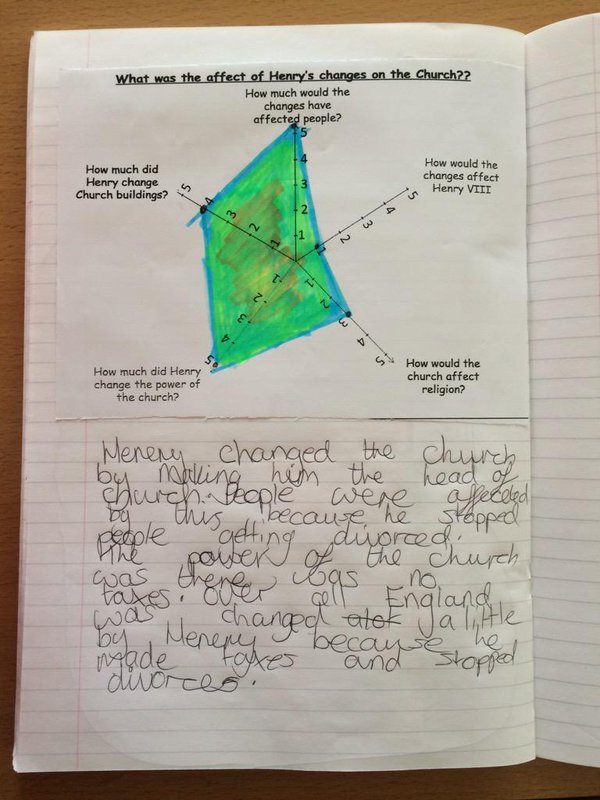 What was the affect of Henry's changes on the Church??
How much would the
changes have
affected people?
How much did
Henry change
Church buildings?
How would the
changes affect
Henry VIII
5
4
3
2
1
5
4
3
2
1
1
2
3
4
5
1
2
3
4
5
1
2
3
4
5
How much did Henry
change the power of
the church?
How would the
church affect
religion?
Henery changed the church
by making him the head of
church. People were affeceted
by this because he stopped
people getting divorced.
The power of the church
was there was no
taxes. Over all England
was changed alot a little
by Henery because he
made taxes and stopped
divorces.